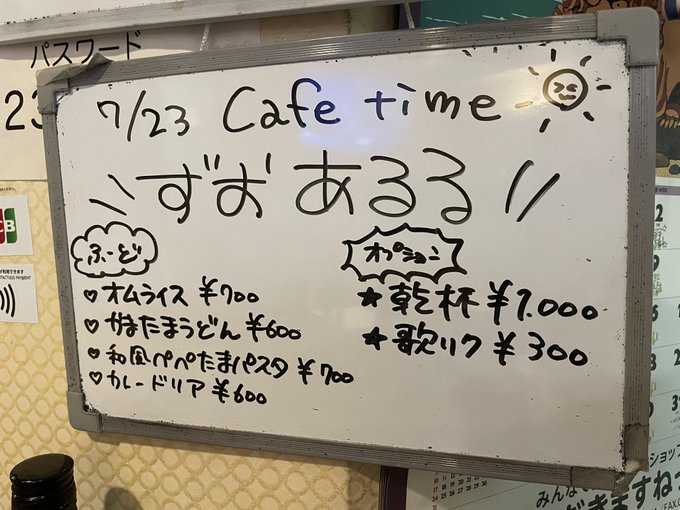 パスワード
7/23 Cafe time
ずお あるる
ふーど
♡ オムライス ¥700
♡ かまたまうどん ¥600
♡ 和風ペペたまパスタ ¥700
♡ カレードリア ¥600
オプション
★ 乾杯 ¥1.000
★ 歌リク ¥300